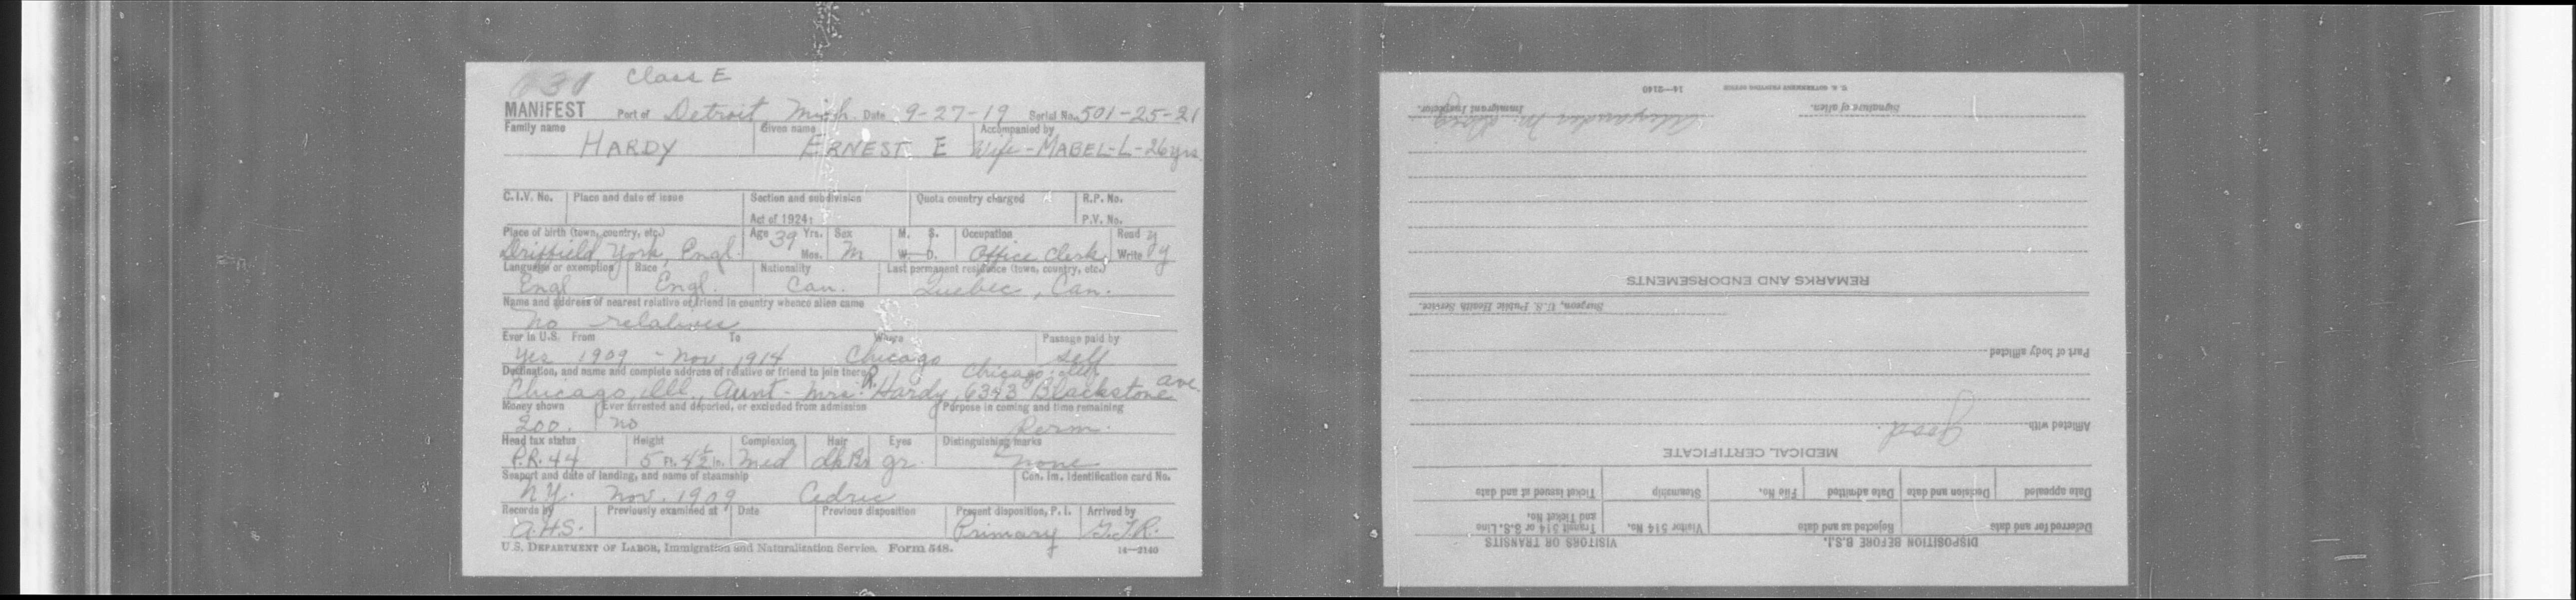 Class E
MANIFEST Port of Detroit, Mich. Date 9-27-19 Serial No. 501-25-21
Family name Given name Accompanied by
HARDY ERNEST E Wife - MABEL-L-26yrs
C.I.V. No. Place and date of issue Section and subdivision Quota country charged R.P. No.
Act of 1924: P.V. No.
Place of birth (town, country, etc.) Age 39 Yrs. Sex M. S. Occupation Read y
Driffield, York, Engl. Mos. M W. D. Office Clerk Write y
Language or exemption Race Nationality Last permanent residence (town, country, etc.)
Engl Engl. Can. Quebec, Can.
Name and address of nearest relative or friend in country whence alien came
No relatives
Ever in U.S. From To Where Passage paid by
Yes 1909 - Nov 1914 Chicago self
Destination, and name and complete address of relative or friend to join there Chicago, Ill
Chicago, Ill., Aunt - Mrs. R. Hardy, 6343 Blackstone ave.
Money shown Ever arrested and deported, or excluded from admission Purpose in coming and time remaining
200. no Perm.
Head tax status Height Complexion Hair Eyes Distinguishing marks
P.R. 44 5 Ft. 4½ In. Med dkBr gr. none
Seaport and date of landing, and name of steamship Can. Im. Identification card No.
N.Y. Nov. 1909 Cedric
Records by Previously examined at Date Previous disposition Present disposition, P. I. Arrived by
A.H.S. Primary G.T.R.
U.S. DEPARTMENT OF LABOR, Immigration and Naturalization Service. Form 548. 14—2140
DISPOSITION BEFORE B.S.I. VISITORS OR TRANSITS
Deferred for and date Rejected as and date Visitor 514 No. Transit 514 or S.S. Line and Ticket No.
Date appealed Decision and date Date admitted File No. Steamship Ticket issued at and date
MEDICAL CERTIFICATE
Afflicted with good.
Part of body afflicted
Surgeon, U.S. Public Health Service.
REMARKS AND ENDORSEMENTS
Alexander M.
Signature of alien. Immigrant Inspector.
U. S. GOVERNMENT PRINTING OFFICE 14—2140